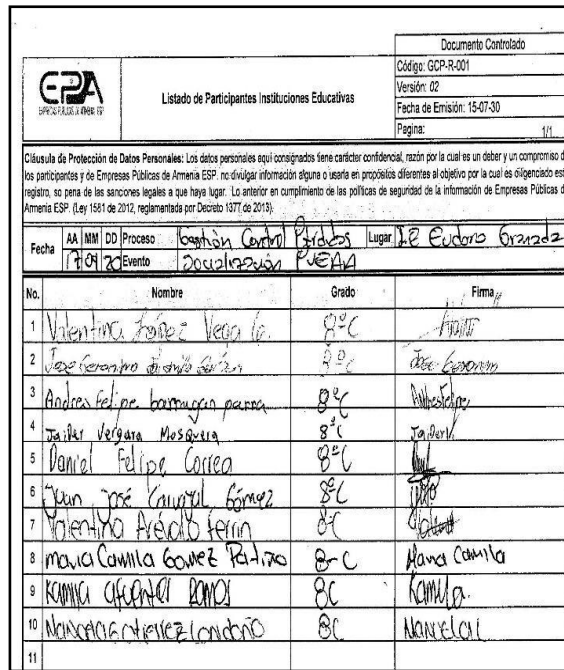 Documento Controlado
EPA
EMPRESAS PÚBLICAS DE ARMENIA ESP
Listado de Participantes Instituciones Educativas
Código: GCP-R-001
Versión: 02
Fecha de Emisión: 15-07-30
Pagina: 1/1
Cláusula de Protección de Datos Personales: Los datos personales aquí consignados tiene carácter confidencial, razón por la cual es un deber y un compromiso d
los participantes y de Empresas Públicas de Armenia ESP. no divulgar información alguna o usarla en propósitos diferentes al objetivo por la cual es diligenciado est
registro, so pena de las sanciones legales a que haya lugar. Lo anterior en cumplimiento de las políticas de seguridad de la información de Empresas Públicas d
Armenia ESP. (Ley 1581 de 2012, reglamentada por Decreto 1377 de 2013).
Fecha AA MM DD Proceso Gestión Control Pérdidas Lugar I.E Eudoro Granada
17 09 20 Evento Socialización PUEAA
No. Nombre Grado Firma
1 Valentina López Vega 8°C
2 Jose Geronimo 8°C Jose Geronim
3 Andres Felipe barragan parra 8°C
4 Jaider Vergara Mosquera 8°C Jaider V
5 Daniel Felipe Correa 8°C
6 Juan José Carvajal Gómez 8°C
7 Valentina Arévalo Ferrin 8-C
8 maria Camila Gomez Patiño 8-C Maria Camila
9 Kamila cifuentes Ramos 8C Kamila.
10 Marcela Gutierrez Londoño 8C
11